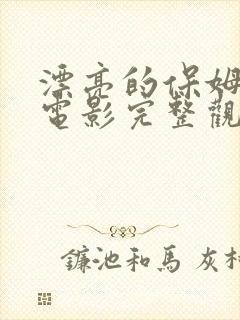 漂亮的保姆
電影完整觀
鐮池和馬 灰村